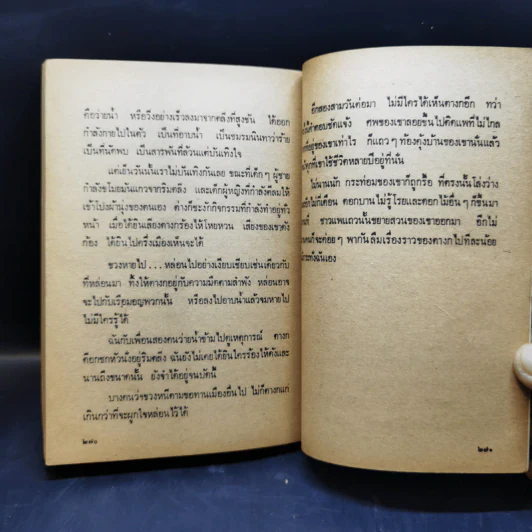 คือว่ายน้ำ หรือวิ่งอย่างเร็วลงมาจากตลิ่งที่สูงชัน ได้ออก
กำลังกายไปในตัว เป็นที่อาบน้ำ เป็นชมรมนินทาว่าร้าย
เป็นที่นัดพบ เป็นสารพันที่ล้วนแต่บันเทิงใจ
แต่เย็นวันนั้นเราไม่บันเทิงกันเลย ขณะที่เด็กๆ ผู้ชาย
กำลังขโมยมันแกวจากริมตลิ่ง และเด็กผู้หญิงที่กำลังคลึมให้
เข้าไปเฝ้าฝูงของตนเอง ต่างก็ชะงักกิจกรรมที่กำลังทำอยู่ทั่ว
หน้า เมื่อได้ยินเสียงตางกร้องไห้โหยหวน เสียงของเขาดัง
ก้อง ได้ยินไปครึ่งเมืองเห็นจะได้
ชวงหายไป ... หล่อนไปอย่างเงียบเชียบเช่นเดียวกับ
ที่หล่อนมา ทิ้งให้ตางกอยู่กับความมืดตามลำพัง หล่อนอาจ
จะไปกับเรือมอญพวกนั้น หรือลงไปอาบน้ำแล้วจมหายไป
ไม่มีใครรู้ได้
ฉันกับเพื่อนสองคนว่ายน้ำข้ามไปดูเหตุการณ์ ตางก
กอดหัวนั่งอยู่ริมตลิ่ง ฉันยังไม่เคยได้ยินใครร้องไห้ดังและ
นานถึงขนาดนั้น ยังจำได้อยู่จนบัดนี้
บางคนว่าชวงหนีตามขอทานเมืองอื่นไป ไม่ก็ตางกแก่
เกินกว่าที่จะผูกใจหล่อนไว้ได้
๒๗๐
อีกสองสามวันต่อมา ไม่มีใครได้เห็นตางกอีก ทว่า
คำตอบชัดแจ้ง ศพของเขาลอยขึ้นไปติดแพที่ไม่ไกล
อยู่ของเขาเท่าไร ก็แถวๆ ท้องคุ้งบ้านของเขานั่นแล้ว
ที่เขาใช้ชีวิตหลายปีอยู่ที่นั่น
ไม่นานนัก กระท่อมของเขาก็ถูกรื้อ ที่ตรงนั้นโล่งว่าง
ไม่กี่เดือน ดอกบานไม่รู้โรยและดอกไม้อื่นๆ ก็ขึ้นมา
ชาวแพแถวนั้นขยายสวนของเขาออกมา อีกไม่
ก็จะค่อยๆ พากันลืมเรื่องราวของตางกไปทีละน้อย
กระทั่งฉันเอง
๒๗๑